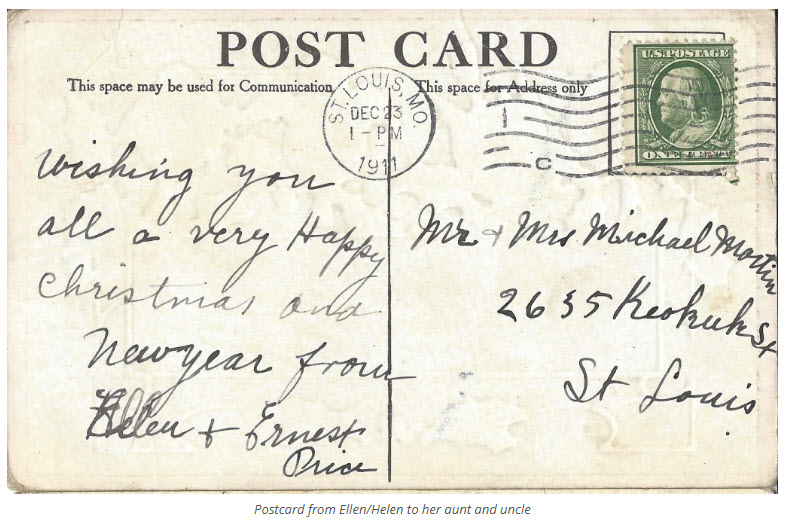 POST CARD
This space may be used for Communication
This space for Address only
U.S. POSTAGE
ONE CENT
ST. LOUIS, MO.
DEC 23
1 - PM
1911
1
C
Wishing you
all a very Happy
Christmas and
New year from
Helen + Ernest
Price
Mr + Mrs Michael Martin
2635 Keokuk St
St Louis
Postcard from Ellen/Helen to her aunt and uncle